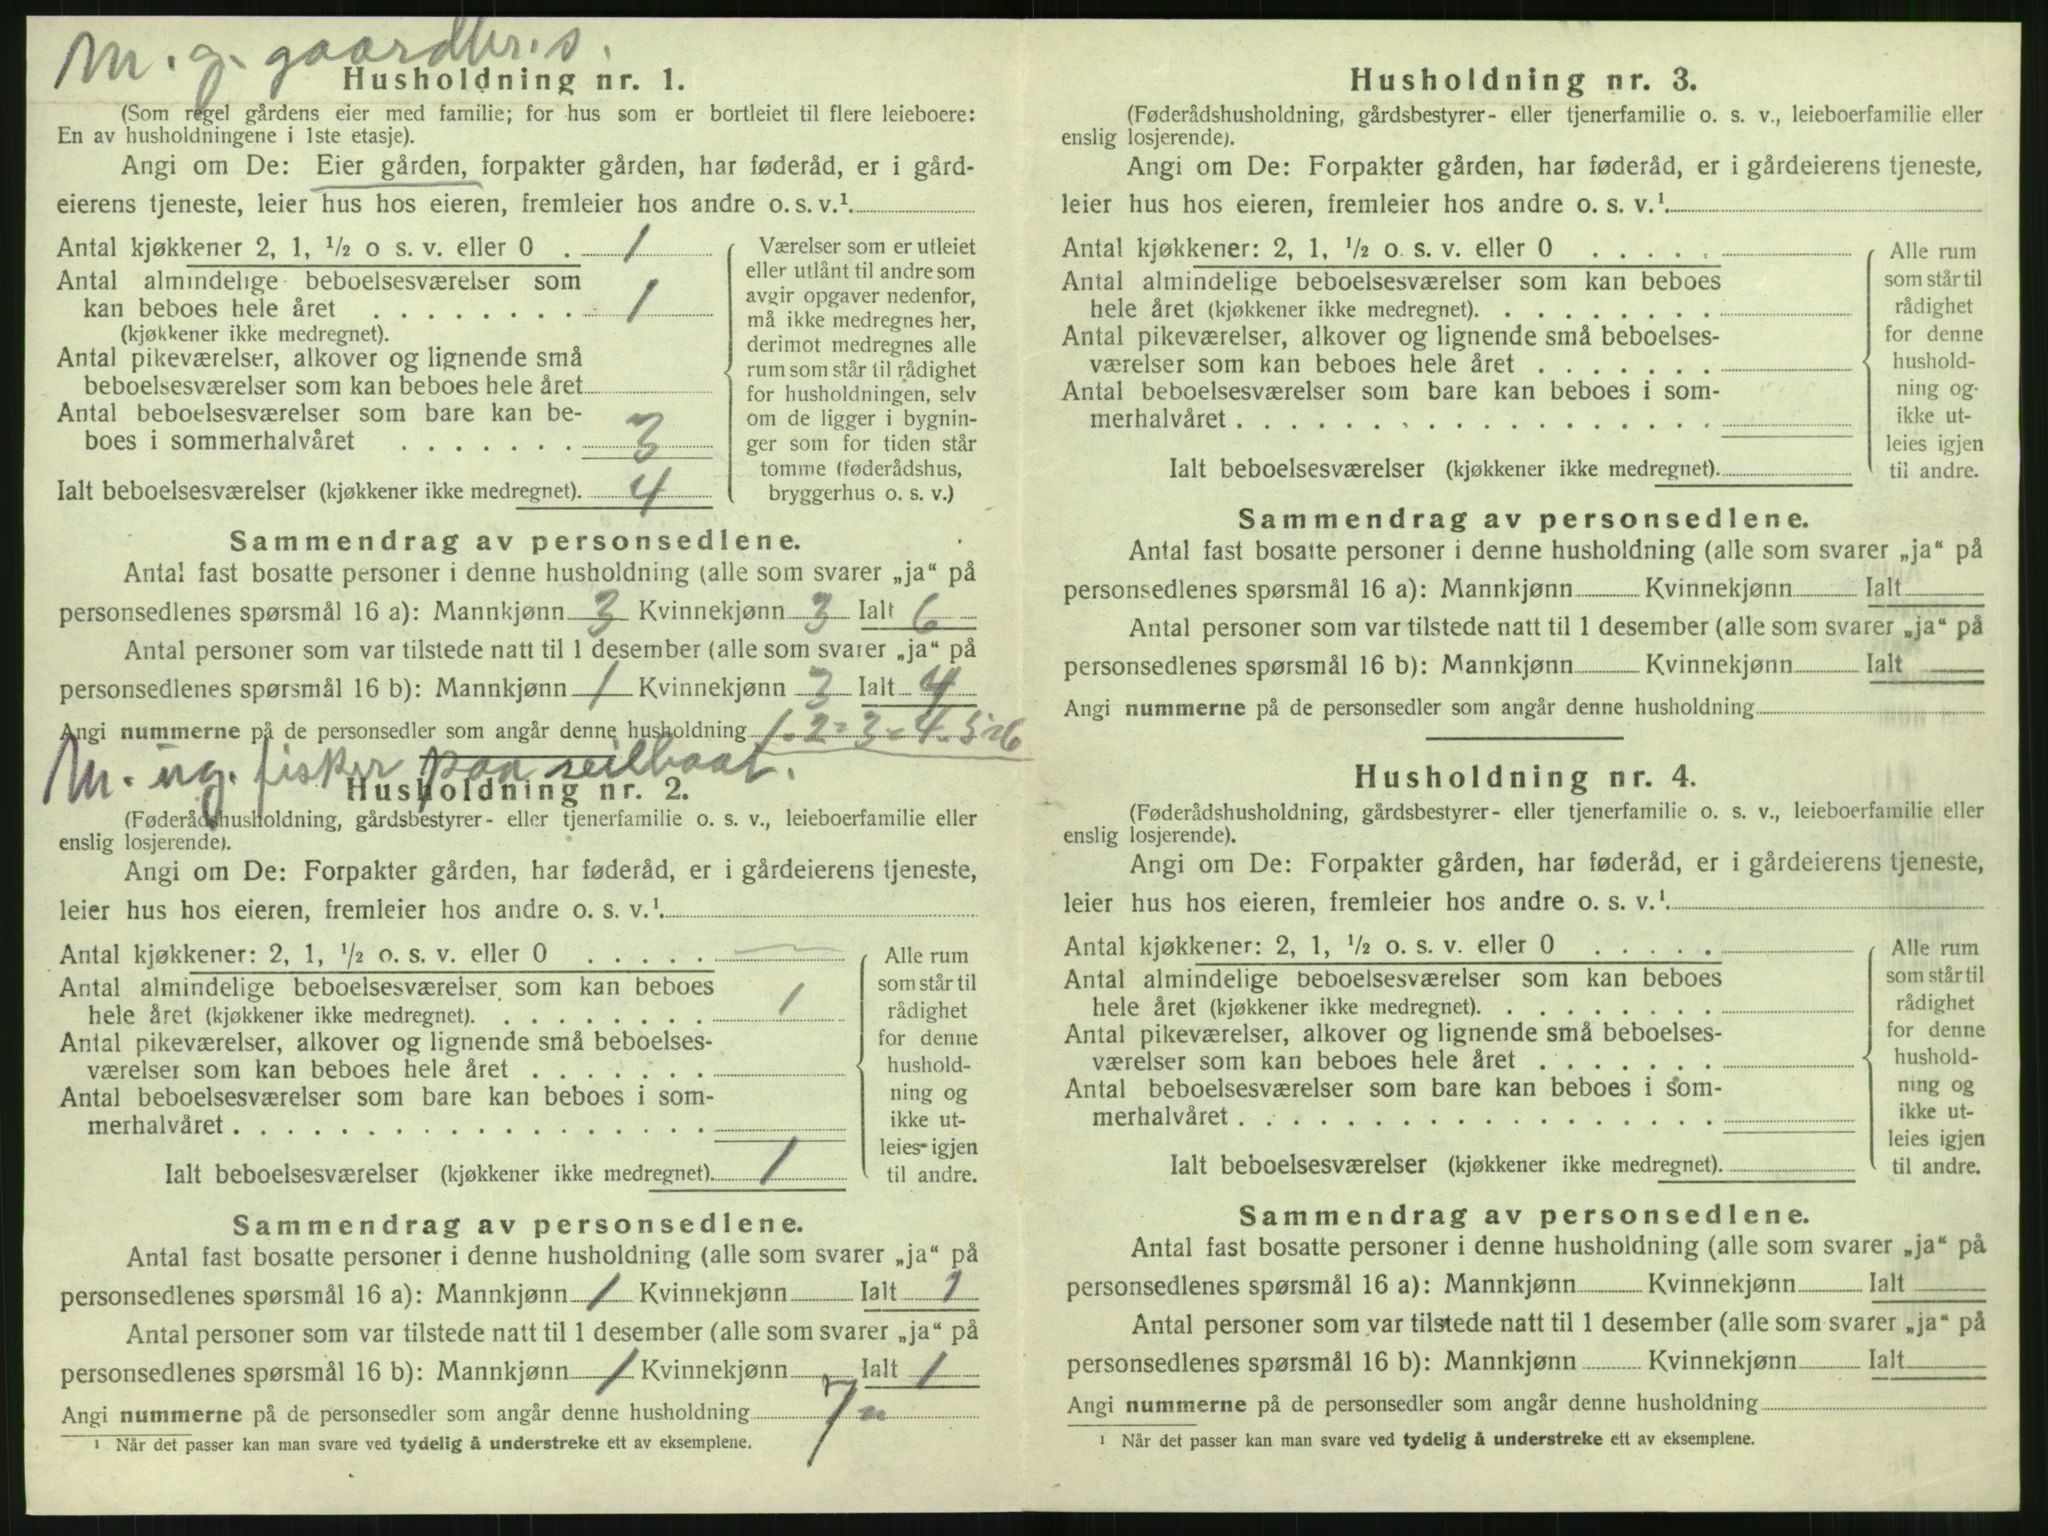 M. g. gaardbr. s.
Husholdning nr. 1.
(Som regel gårdens eier med familie; for hus som er bortleiet til flere leieboere:
En av husholdningene i 1ste etasje).
Angi om De: Eier gården, forpakter gården, har føderåd, er i gård-
eierens tjeneste, leier hus hos eieren, fremleier hos andre o. s. v.¹.
Antal kjøkkener 2, 1, ½ o s. v. eller 0 . 1
Antal almindelige beboelsesværelser som
kan beboes hele året . . . . . . . . 1
(kjøkkener ikke medregnet).
Antal pikeværelser, alkover og lignende små
beboelsesværelser som kan beboes hele året
Antal beboelsesværelser som bare kan be-
boes i sommerhalvåret . . . . . . . 3
Ialt beboelsesværelser (kjøkkener ikke medregnet). 4
Værelser som er utleiet
eller utlånt til andre som
avgir opgaver nedenfor,
må ikke medregnes her,
derimot medregnes alle
rum som står til rådighet
for husholdningen, selv
om de ligger i bygnin-
ger som for tiden står
tomme (føderådshus,
bryggerhus o. s. v.)
Sammendrag av personsedlene.
Antal fast bosatte personer i denne husholdning (alle som svarer „ja“ på
personsedlenes spørsmål 16 a): Mannkjønn 3 Kvinnekjønn 3 Ialt 6
Antal personer som var tilstede natt til 1 desember (alle som svarer „ja“ på
personsedlenes spørsmål 16 b): Mannkjønn 1 Kvinnekjønn 3 Ialt 4
Angi nummerne på de personsedler som angår denne husholdning 1-2-3-4-5-6
M. ug. fisker paa seilbaat.
Husholdning nr. 2.
(Føderådshusholdning, gårdsbestyrer- eller tjenerfamilie o. s. v., leieboerfamilie eller
enslig losjerende).
Angi om De: Forpakter gården, har føderåd, er i gårdeierens tjeneste,
leier hus hos eieren, fremleier hos andre o. s. v.¹.
Antal kjøkkener: 2, 1, ½ o. s. v. eller 0 . . . . . —
Antal almindelige beboelsesværelser som kan beboes
hele året (kjøkkener ikke medregnet). . . . . . . . . 1
Antal pikeværelser, alkover og lignende små beboelses-
værelser som kan beboes hele året . . . . . . .
Antal beboelsesværelser som bare kan beboes i som-
merhalvåret . . . . . . . . . . . . . . . . . .
Ialt beboelsesværelser (kjøkkener ikke medregnet). 1
Alle rum
som står til
rådighet
for denne
hushold-
ning og
ikke ut-
leies igjen
til andre.
Sammendrag av personsedlene.
Antal fast bosatte personer i denne husholdning (alle som svarer „ja“ på
personsedlenes spørsmål 16 a): Mannkjønn 1 Kvinnekjønn Ialt 1
Antal personer som var tilstede natt til 1 desember (alle som svarer „ja“ på
personsedlenes spørsmål 16 b): Mannkjønn 1 Kvinnekjønn Ialt 1
Angi nummerne på de personsedler som angår denne husholdning 7
¹ Når det passer kan man svare ved tydelig å understreke ett av eksemplene.
Husholdning nr. 3.
(Føderådshusholdning, gårdsbestyrer- eller tjenerfamilie o. s. v., leieboerfamilie eller
enslig losjerende).
Angi om De: Forpakter gården, har føderåd, er i gårdeierens tjeneste,
leier hus hos eieren, fremleier hos andre o. s. v.¹.
Antal kjøkkener: 2, 1, ½ o. s. v. eller 0 . . . . .
Antal almindelige beboelsesværelser som kan beboes
hele året (kjøkkener ikke medregnet). . . . . . . . .
Antal pikeværelser, alkover og lignende små beboelses-
værelser som kan beboes hele året . . . . . . .
Antal beboelsesværelser som bare kan beboes i som-
merhalvåret . . . . . . . . . . . . . . . . . .
Ialt beboelsesværelser (kjøkkener ikke medregnet).
Alle rum
som står til
rådighet
for denne
hushold-
ning og
ikke ut-
leies igjen
til andre.
Sammendrag av personsedlene.
Antal fast bosatte personer i denne husholdning (alle som svarer „ja“ på
personsedlenes spørsmål 16 a): Mannkjønn Kvinnekjønn Ialt
Antal personer som var tilstede natt til 1 desember (alle som svarer „ja“ på
personsedlenes spørsmål 16 b): Mannkjønn Kvinnekjønn Ialt
Angi nummerne på de personsedler som angår denne husholdning
Husholdning nr. 4.
(Føderådshusholdning, gårdsbestyrer- eller tjenerfamilie o. s. v., leieboerfamilie eller
enslig losjerende).
Angi om De: Forpakter gården, har føderåd, er i gårdeierens tjeneste,
leier hus hos eieren, fremleier hos andre o. s. v.¹.
Antal kjøkkener: 2, 1, ½ o. s. v. eller 0 . . . . .
Antal almindelige beboelsesværelser som kan beboes
hele året (kjøkkener ikke medregnet). . . . . . . . .
Antal pikeværelser, alkover og lignende små beboelses-
værelser som kan beboes hele året . . . . . . .
Antal beboelsesværelser som bare kan beboes i som-
merhalvåret . . . . . . . . . . . . . . . . . .
Ialt beboelsesværelser (kjøkkener ikke medregnet).
Alle rum
som står til
rådighet
for denne
hushold-
ning og
ikke ut-
leies igjen
til andre.
Sammendrag av personsedlene.
Antal fast bosatte personer i denne husholdning (alle som svarer „ja“ på
personsedlenes spørsmål 16 a): Mannkjønn Kvinnekjønn Ialt
Antal personer som var tilstede natt til 1 desember (alle som svarer „ja“ på
personsedlenes spørsmål 16 b): Mannkjønn Kvinnekjønn Ialt
Angi nummerne på de personsedler som angår denne husholdning
¹ Når det passer kan man svare ved tydelig å understreke ett av eksemplene.